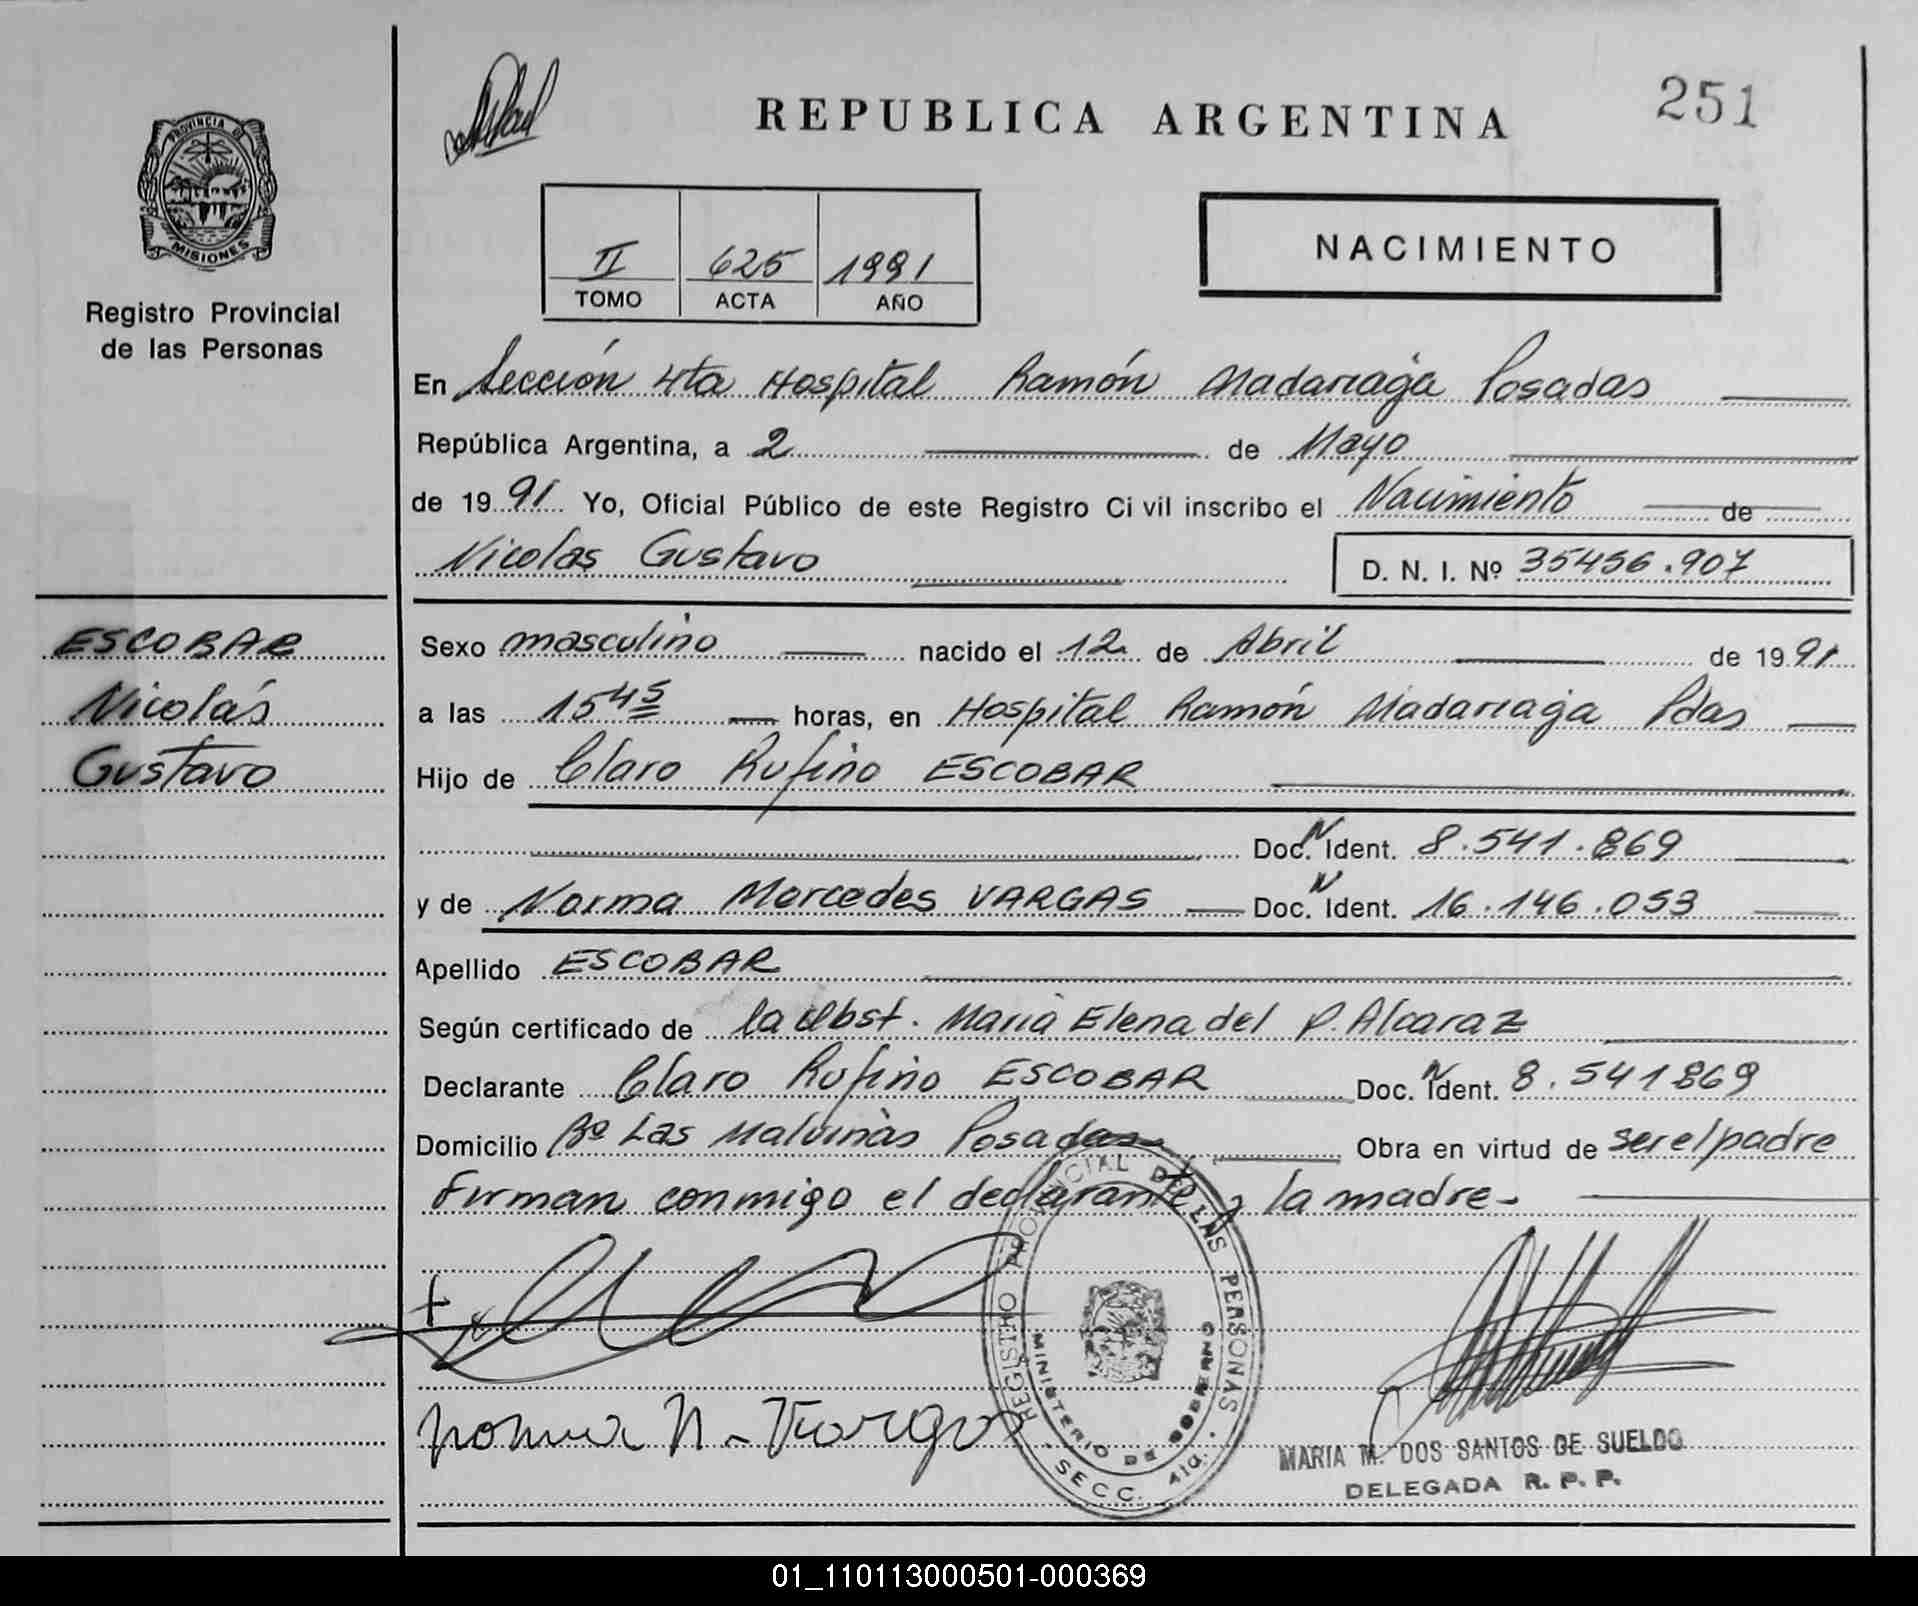 251
REPUBLICA ARGENTINA
PROVINCIA DE
MISIONES
Registro Provincial
de las Personas
NACIMIENTO
II 625 1991
TOMO ACTA AÑO
En Sección 4ta Hospital Ramón Madariaga Posadas
República Argentina, a 2 de Mayo
de 1991 Yo, Oficial Público de este Registro Ci vil inscribo el Nacimiento de
Nicolas Gustavo D. N. I. Nº 35456.907
ESCOBAR
Nicolás
Gustavo
Sexo masculino nacido el 12 de Abril de 1991
a las 15 45 horas, en Hospital Ramón Madariaga Pdas
Hijo de Claro Rufino ESCOBAR
Doc. N Ident. 8.541.869
y de Norma Mercedes VARGAS Doc. N Ident. 16.146.053
Apellido ESCOBAR
Según certificado de la Obst. Maria Elena del P. Alcaraz
Declarante Claro Rufino ESCOBAR Doc. N Ident. 8.541869
Domicilio Bº Las Malvinas Posadas Obra en virtud de ser el padre
Firman conmigo el declarante y la madre-
Norma M. Vargas
REGISTRO PROVINCIAL DE LAS PERSONAS
MINISTERIO DE GOBIERNO
SECC. 4ta.
MARIA M. DOS SANTOS DE SUELDO
DELEGADA R. P. P.
01_110113000501-000369